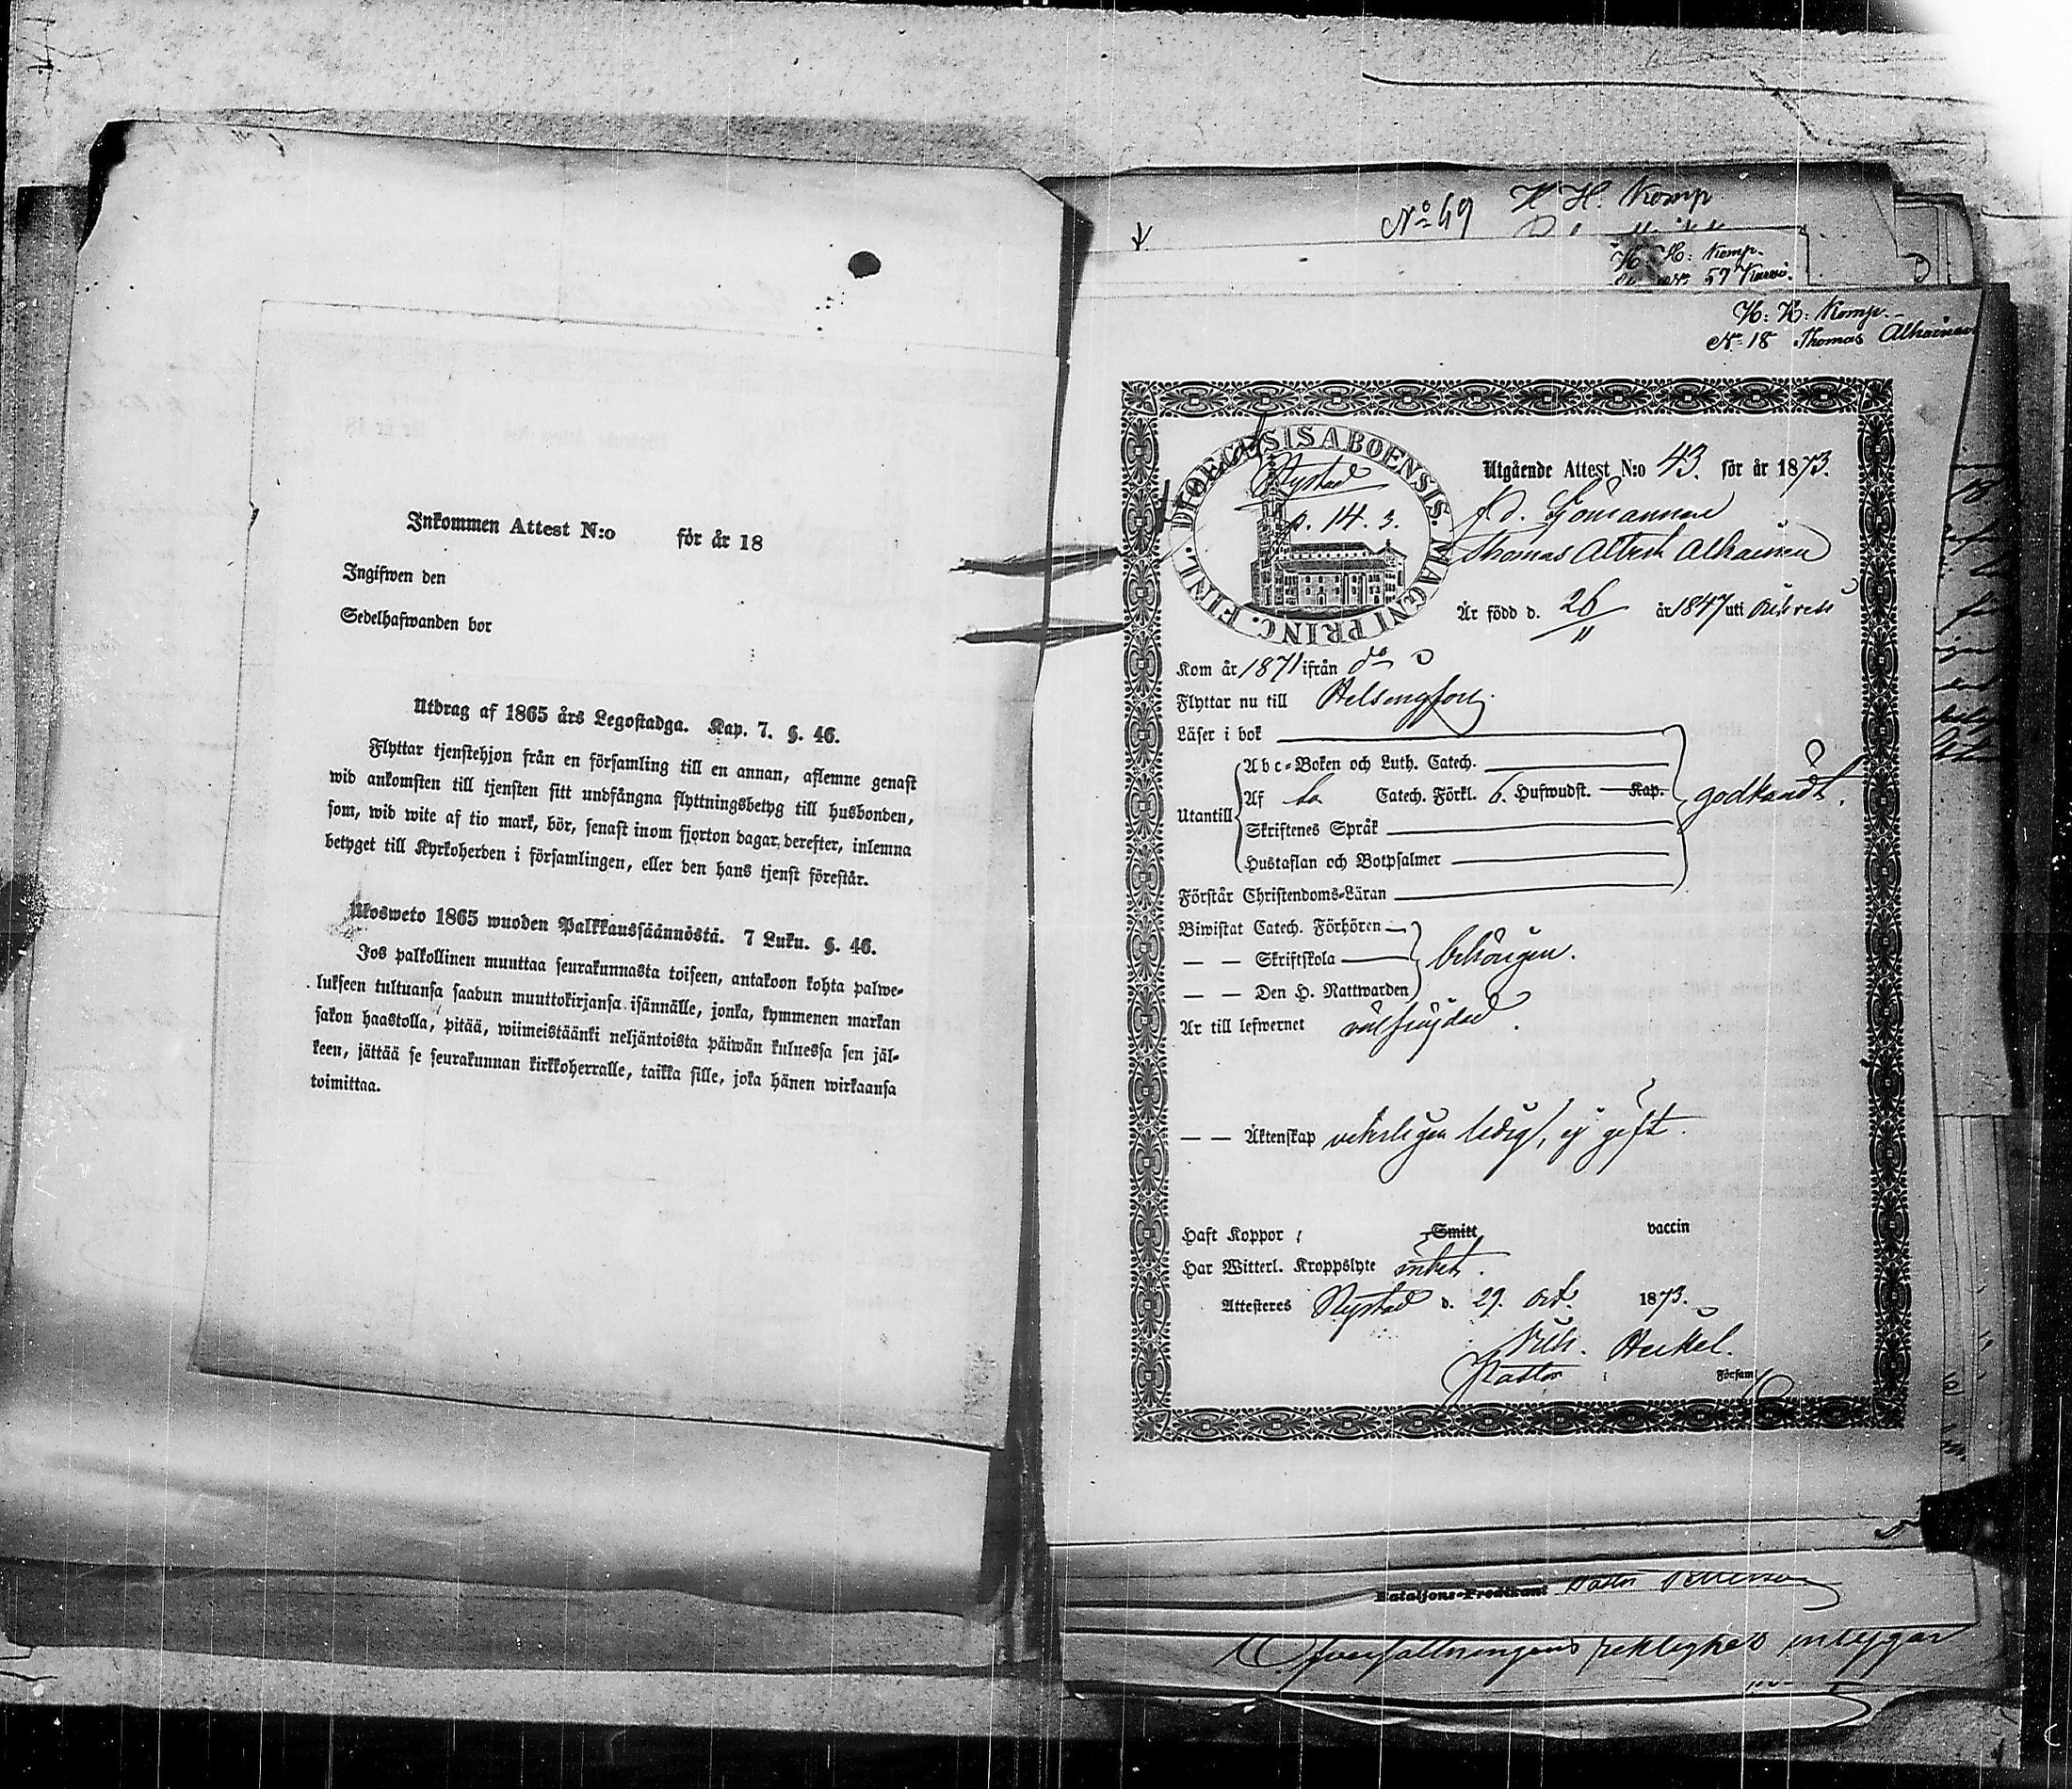 Inkommen Attest N:o för år 18
Ingifwen den
Sedelhafwanden bor
Utdrag af 1865 års Legostadga. Kap. 7. §. 46.
Flyttar tjenstehjon från en församling till en annan, aflemne genast
wid ankomsten till tjensten sitt undfångna flyttningsbetyg till husbonden,
som, wid wite af tio mark, bör, senast inom fjorton dagar derefter, inlemna
betyget till Kyrkoherden i församlingen, eller den hans tjenst förestår.
Ulosweto 1865 wuoden Palkkaussäännöstä. 7 Luku. §. 46.
Jos palkollinen muuttaa seurakunnasta toiseen, antakoon kohta palwe-
lukseen tultuansa saadun muuttokirjansa isännälle, jonka, kymmenen markan
sakon haastolla, pitää, wiimeistäänki neljäntoista päiwän kuluessa sen jäl-
keen, jättää se seurakunnan kirkkoherralle, taikka sille, joka hänen wirkaansa
toimittaa.
No 49 H. Komp
H: Komp.
57
Komp.
No 18 Thomas
DIOECESIS ABOENSIS. MAGNI PRINC. FINL.
Nystad
p. 14. 3.
Utgående Attest N:o 43. för år 1873.
f.d. Sjömannen
Thomas
Är född d. 26/11 år 1847 uti
Kom år 1871 ifrån do
Flyttar nu till Helsingfors.
Läser i bok
Abc-Boken och Luth. Catech.
Utantill Af Catech. Förkl. 6. Hufwudst. Kap. godkändt.
Skriftenes Språk
Hustaflan och Botpsalmer
Förstår Christendoms-Läran
Biwistat Catech. Förhören
— — Skriftskola behörigen.
— — Den H. Nattwarden
Är till lefwernet välfrejdad.
— — Äktenskap veterligen ledig, ej gift.
Haft Koppor Smitt vaccin
Har Witterl. Kroppslyte intet.
Attesteres Nystad d. 29. Oct. 1873.
Heikel.
Pastor Försam
Bataljons-Predikant Pastor
riktighet intygar